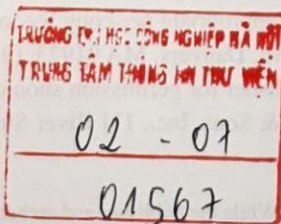 TRƯỜNG ĐẠI HỌC CÔNG NGHIỆP HÀ NỘI
TRUNG TÂM THÔNG TIN THƯ VIỆN
02 - 07
01567